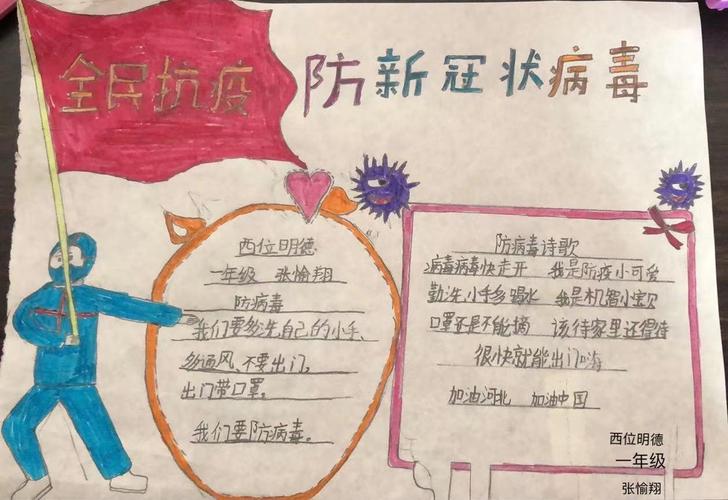 全民抗疫
防新冠状病毒
西位明德
一年级 张愉翔
防病毒
我们要多洗自己的小手、
多通风、不要出门,
出门带口罩。
我们要防病毒。
防病毒诗歌
病毒病毒快走开 我是防疫小可爱
勤洗小手多喝水 我是机智小宝贝
口罩还是不能摘 该待家里还得待
很快就能出门嗨
加油河北 加油中国
西位明德
一年级
张愉翔